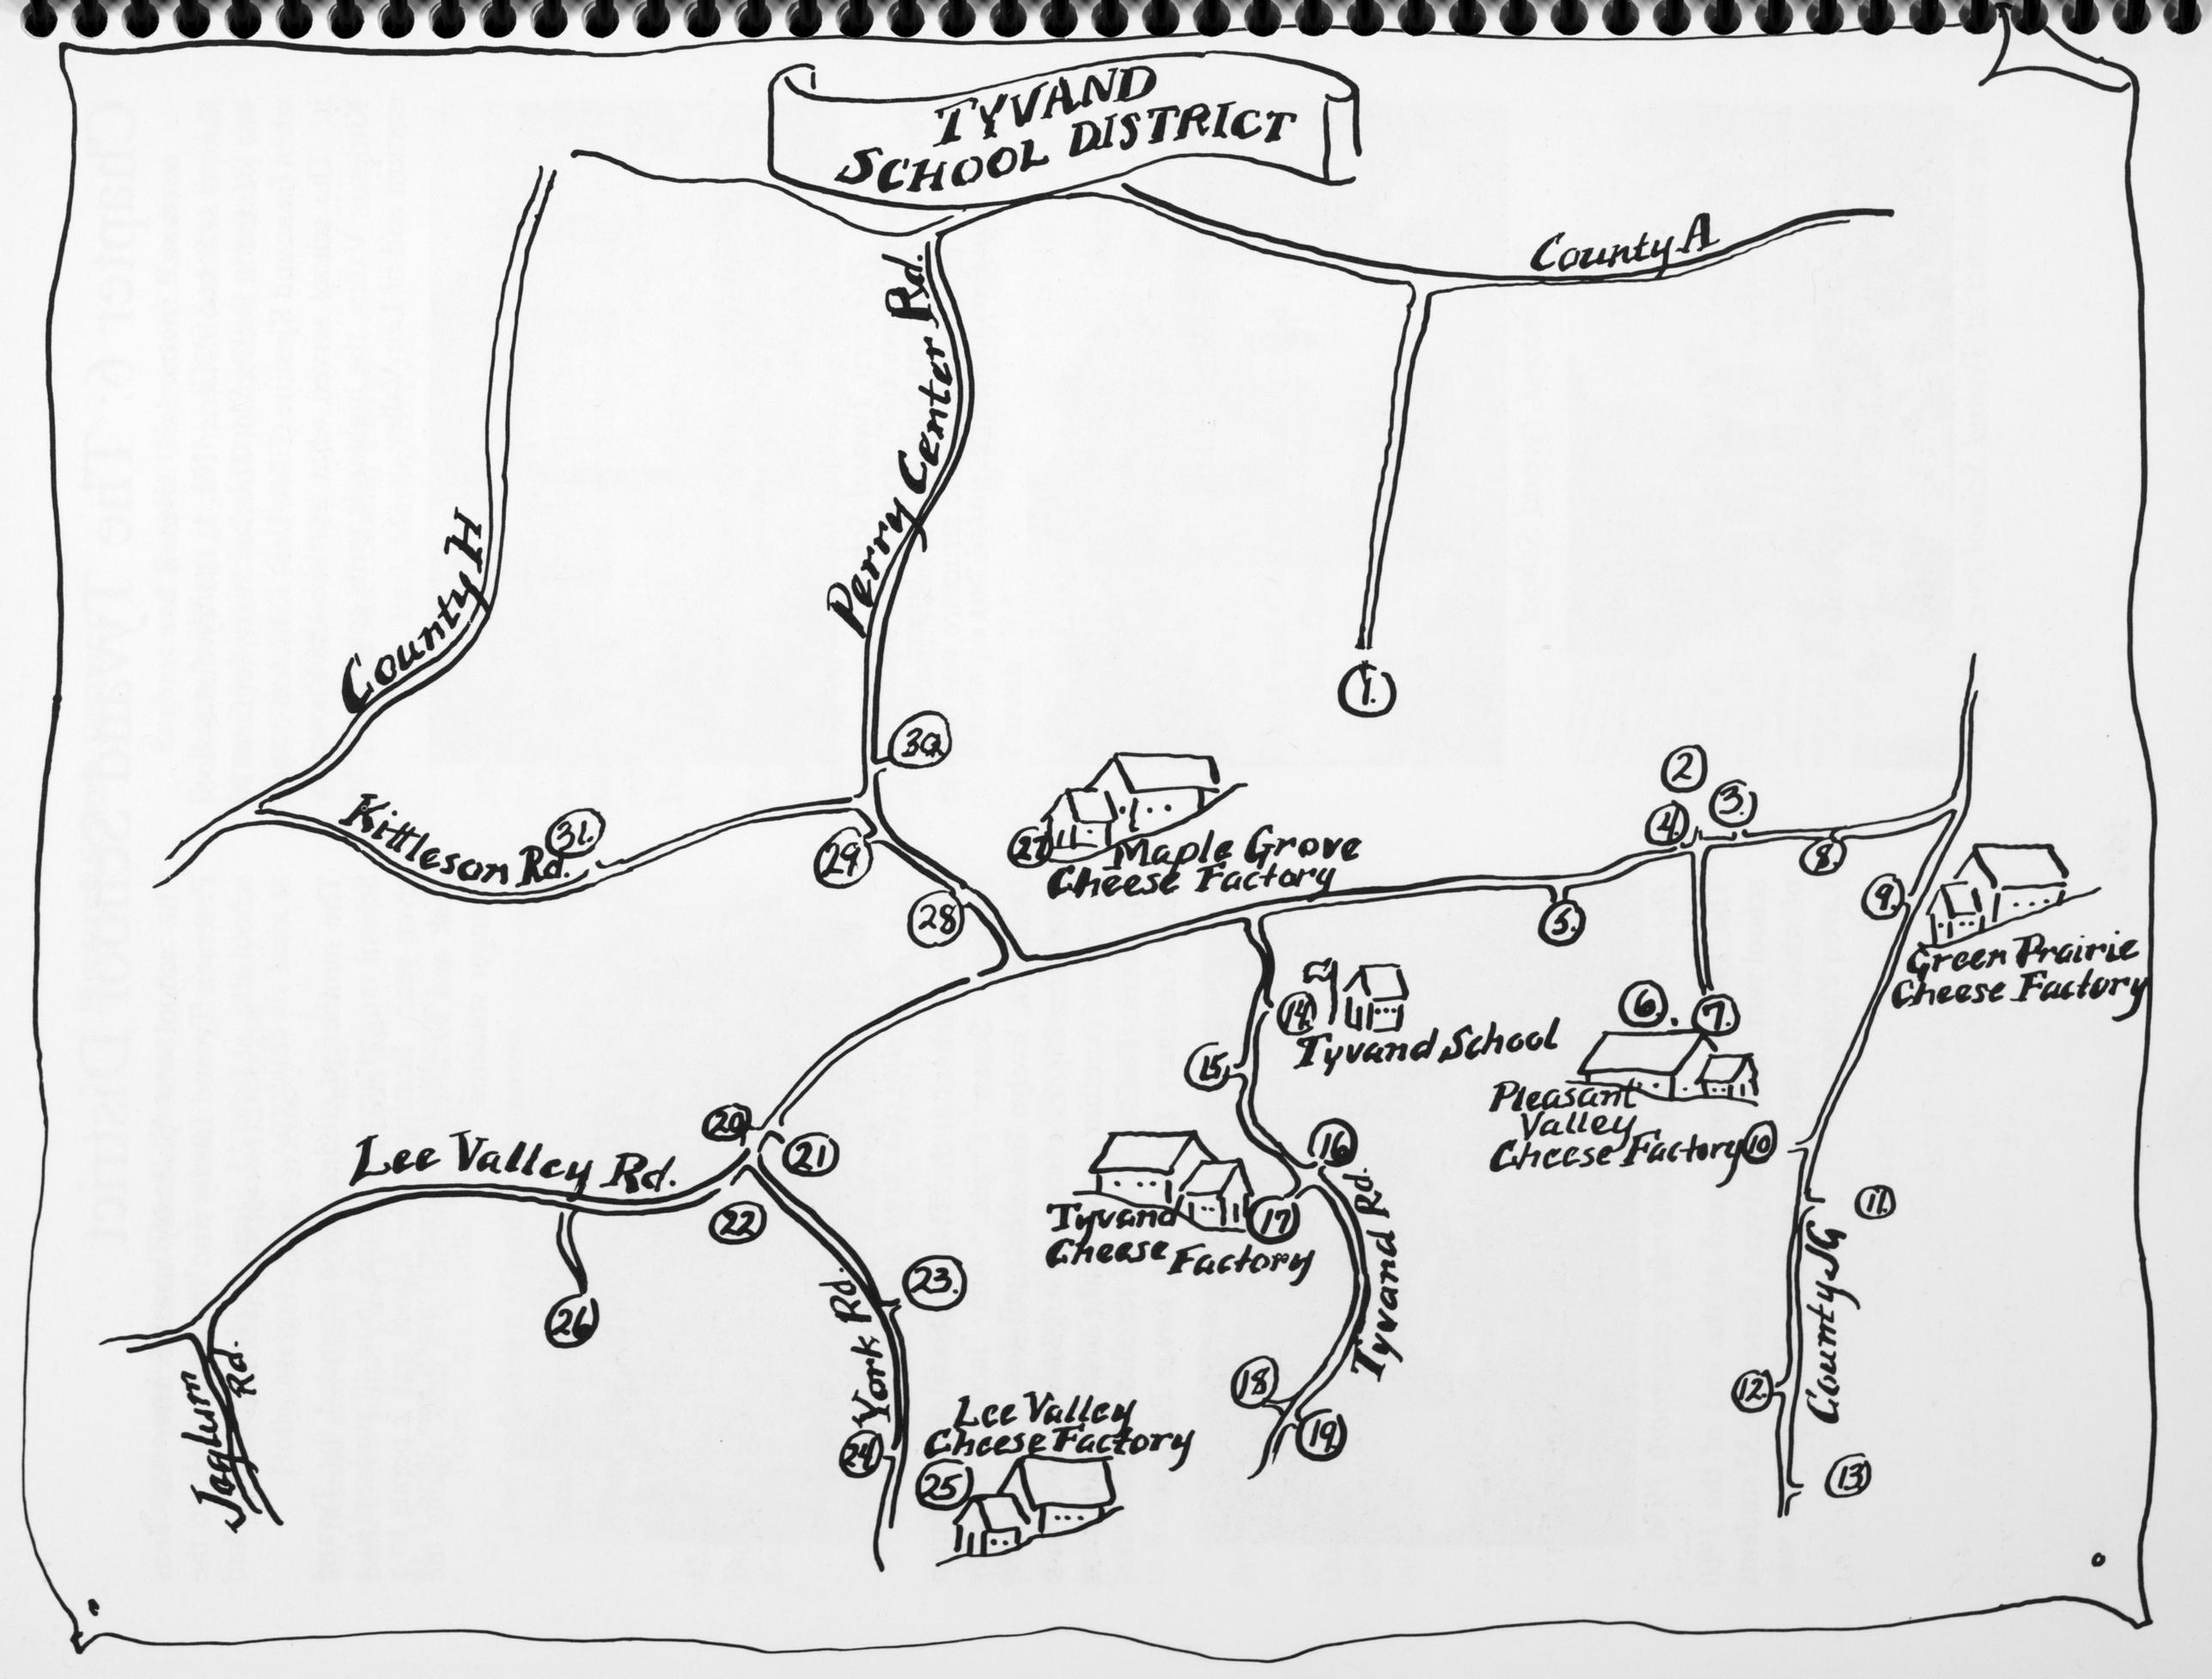 TYVAND
SCHOOL DISTRICT
County A
Perry Center Rd.
County H
1.
30.
Kittleson Rd.
31.
29
28
27
Maple Grove
Cheese Factory
2
3.
4.
5.
8.
9.
Green Prairie
Cheese Factory
14.
Tyvand School
15.
6.
7.
Pleasant
Valley
Cheese Factory
10
11.
County JG
12.
13
16
17
Tyvand
Cheese Factory
Tyvand Rd.
18
19.
20
21
22
Lee Valley Rd.
26
23.
York Rd.
24
Lee Valley
Cheese Factory
25
Jaglum
Rd.